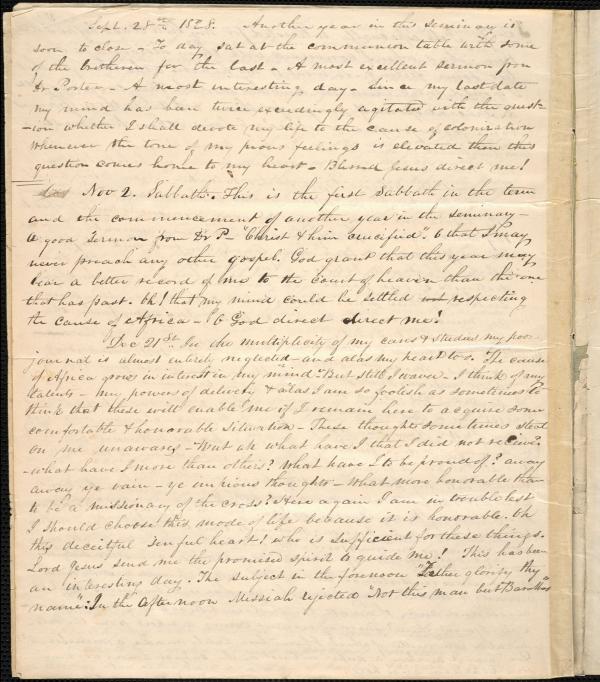 Sept. 28th 1828. Another year in this seminary is
soon to close - To day sat at the communion table with some
of the bretheren for the last - A most excellent sermon from
Dr Porter - A most interesting day - Since my last date
my mind has been twice exceedingly agitated with the quest
-ion whether I shall devote my life to the cause of colonization
Whenever the tone of my pious feelings is elevated then this
question comes home to my heart - Blessed Jesus direct me!
Nov 2. Sabbath. This is the first Sabbath in the term
and the commencement of another year in the seminary -
A good Sermon from Dr P - "Christ & him crucified". O that I may
never preach any other gospel. God grant that this year may
bear a better record of me to the court of heaven than the one
that has past. Oh! that my mind could be settled respecting
the cause of Africa - O God direct direct me!
Dec 21st In the multiplicity of my cares & studies my poor
journal is almost entirely neglected - and alas my heart too. The cause
of Africa grows in interest in my mind But still I waver - I think of my
talents - my powers of delivery & alas I am so foolish as sometimes to
think that these will enable me if I remain here to acquire some
comfortable & honorable situation - These thoughts sometimes steal
on me unawares - But ah what have I that I did not receive?
- what have I more than others? What have I to be proud of? away
away ye vain - ye impious thoughts - What more honorable than
to be a missionary of the cross? Here again I am in trouble lest
I should choose this mode of life because it is honorable. Oh
this deceitful sinful heart! who is sufficient for these things.
Lord Jesus send me the promised spirit to guide me! This has been
an interesting day. The subject in the forenoon "Father glorify thy
name": In the afternoon Messiah rejected Not this man but Barabbas"